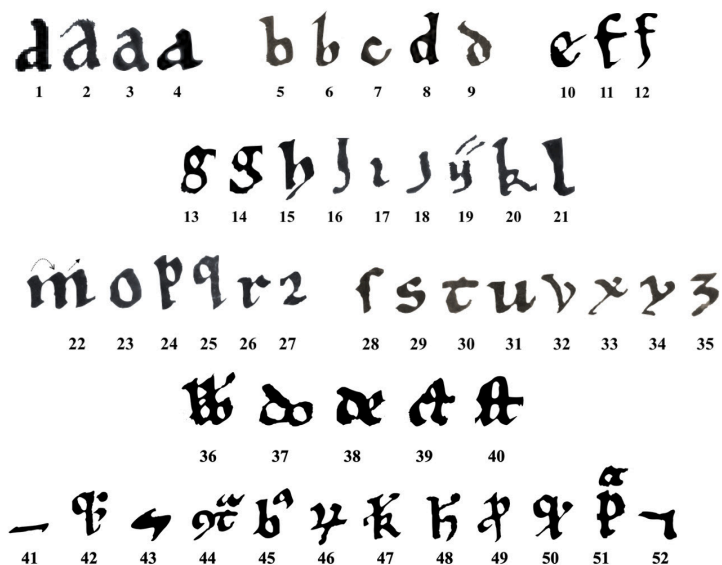 a a a a b b c d d e f f
1 2 3 4 5 6 7 8 9 10 11 12
g g h j ı j ÿ k l
13 14 15 16 17 18 19 20 21
m o p q r ꝛ ſ s t u v x y z
22 23 24 25 26 27 28 29 30 31 32 33 34 35
w do de ct ſt
36 37 38 39 40
41 42 43 44 45 46 47 48 49 50 51 52